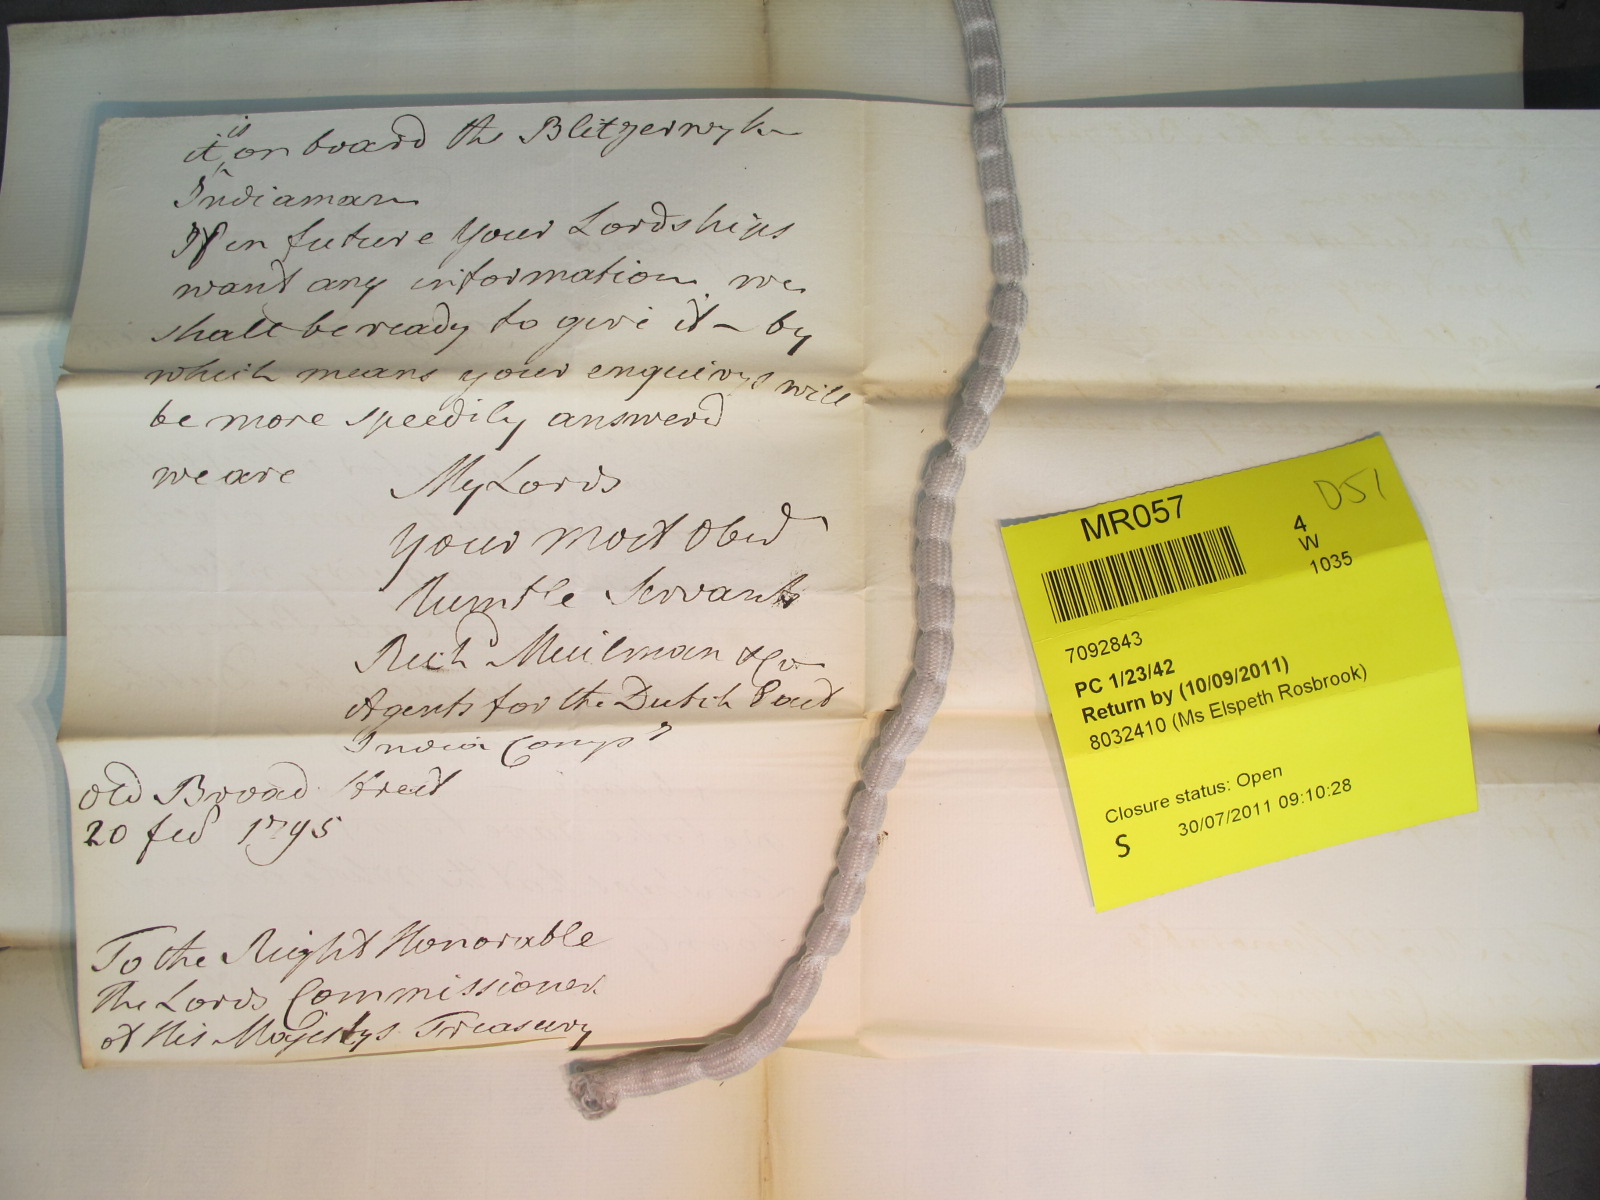 it is on board the Blitzerwyk
Indiaman
If in future your Lordships
want any information we
shall be ready to give it – by
which means your enquirys will
be more speedily answerd
we are My Lords
your most Obed
Humble Servants
Richd Muilman & Co
Agents for the Dutch East
India Compy
Old Broad Street
20 feb 1795
To the Right Honorable
The Lords Commissioners
of His Majestys Treasury
MR057
D51
4
W
1035
7092843
PC 1/23/42
Return by (10/09/2011)
8032410 (Ms Elspeth Rosbrook)
Closure status: Open
S 30/07/2011 09:10:28